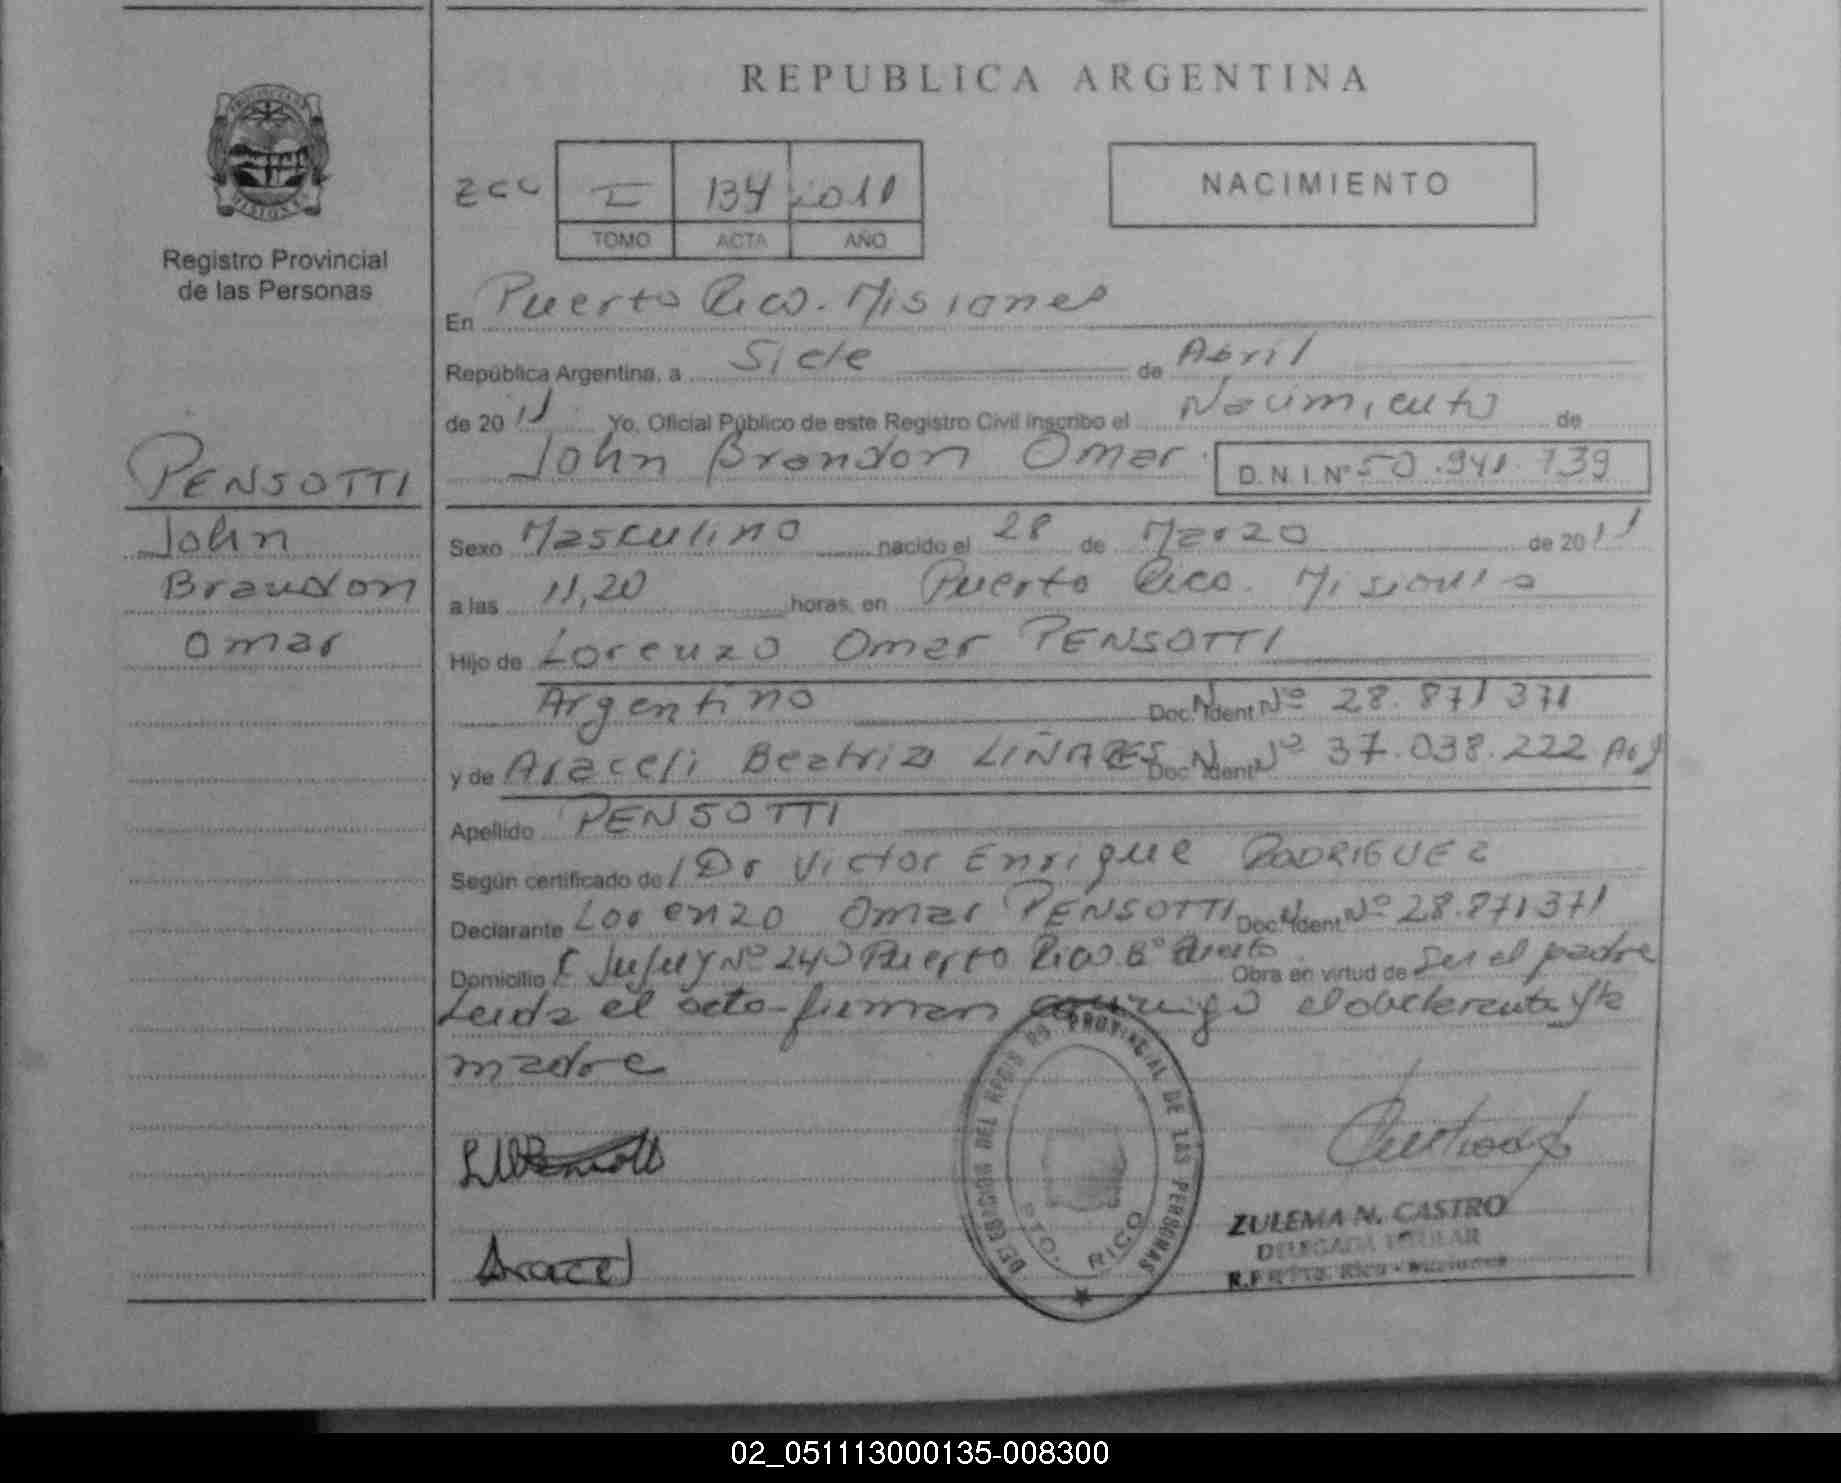 REPUBLICA ARGENTINA
PROVINCIA DE MISIONES
Registro Provincial
de las Personas
ZCC I 134 2011
TOMO ACTA AÑO
NACIMIENTO
En Puerto Rico. Misiones
República Argentina, a Siete de Abril
de 2011 Yo, Oficial Público de este Registro Civil inscribo el Nacimiento de
John Brandon Omar D.N.I.Nº 50.941.739
PENSOTTI
John
Brandon
Omar
Sexo Masculino nacido el 28 de Marzo de 2011
a las 11,20 horas, en Puerto Rico. Misiones
Hijo de Lorenzo Omar PENSOTTI
Argentino Doc. Ident. Nº 28.871371
y de Araceli Beatriz LIÑARES Doc. Ident. Nº 37.038.222 Arg
Apellido PENSOTTI
Según certificado de / Dr Victor Enrique RODRIGUEZ
Declarante Lorenzo Omar PENSOTTI Doc. Ident. Nº 28.871371
Domicilio C Jujuy Nº 240 Puerto Rico. Bº Puerto Obra en virtud de Ser el padre
Leida el acta-firman conmigo el declarante y la
madre
Aracel
PROVINCIAL DE LAS PERSONAS
PTO. RICO
ZULEMA N. CASTRO
DELEGADA TITULAR
R.P.P. Pto. Rico - Misiones
02_051113000135-008300